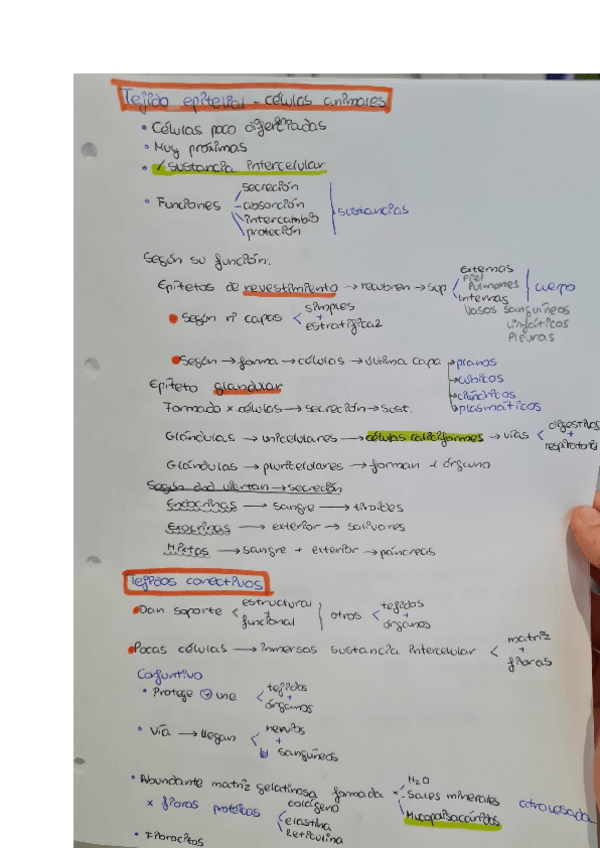 Tejido epitelial - células animales
• Células poco diferenciadas
• Muy próximas
• / sustancia intercelular
• Funciones secreción
absorción
intercambio
protección
sustancias
Según su función.
Epitetos de revestimiento → recubren → sup externas
Piel
Pulmones
internas
cuerpo
Vasos sanguíneos
Linfáticos
Pleuras
• Según nº capas < simples
+
estratificaz
• Según → forma → células → última capa → planos
→ cúbicos
→ cilíndricos
→ plasmáticos
Epiteto glandular
Formado x células → secreción → sust.
Glándulas → unicelulares → células caliciformes → vías < digestivas
+
respiratoria
Glándulas → pluricelulares → forman 1 órgano
Según viertan → secreción
Endocrinas → sangre → tiroides
Exocrinas → exterior → salivares
Mixtas → sangre + exterior → páncreas
Tejidos conectivos
• Dan soporte < estructural
+
funcional
otros < tejidos
+
órganos
• Pocas células → inmersas sustancia intercelular < matriz
+
fibras
Conjuntivo
• Protege + une < tejidos
+
órganos
• Vía → llegan < nervios
+
sanguíneos
• Abundante matriz gelatinosa formada H2O
Sales minerales
Mucopolisacáridos
atravesada
x fibras proteicas colágeno
elastina
reticulina
• Fibrocitos